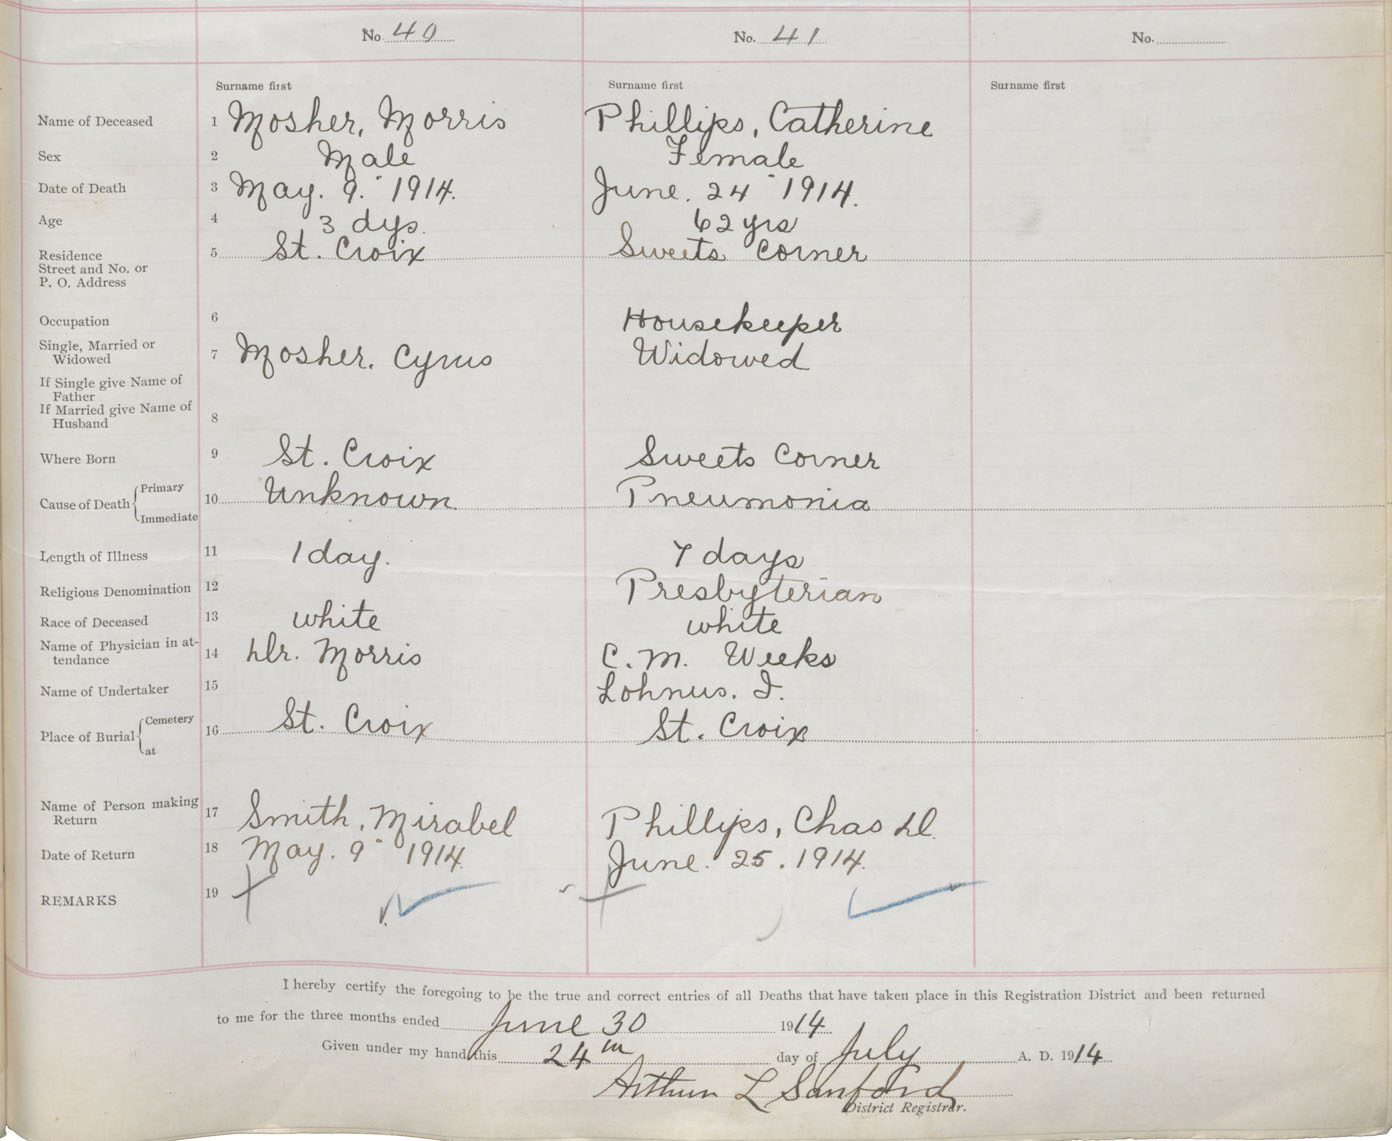 No. 40 No. 41 No.
Surname first Surname first Surname first
Name of Deceased 1 Mosher, Morris Phillips, Catherine
Sex 2 Male Female
Date of Death 3 May. 9. 1914. June. 24 1914.
Age 4 3 dys. 62 yrs
Residence 5 St. Croix Sweets Corner
Street and No. or
P. O. Address
Occupation 6 Housekeeper
Single, Married or
Widowed 7 Mosher. Cyrus Widowed
If Single give Name of
Father
If Married give Name of
Husband 8
Where Born 9 St. Croix Sweets Corner
Cause of Death Primary
Immediate 10 Unknown. Pneumonia
Length of Illness 11 1 day. 7 days
Religious Denomination 12 Presbyterian
Race of Deceased 13 white white
Name of Physician in at-
tendance 14 Dr. Morris C. M. Weeks
Name of Undertaker 15 Lohnus. I.
Place of Burial Cemetery
at 16 St. Croix St. Croix
Name of Person making
Return 17 Smith, Mirabel Phillips, Chas D.
Date of Return 18 May. 9 1914. June. 25. 1914.
REMARKS 19
I hereby certify the foregoing to be the true and correct entries of all Deaths that have taken place in this Registration District and been returned
to me for the three months ended June 30 1914
Given under my hand this 24th day of July A. D. 1914
Arthur L Sanford
District Registrar.